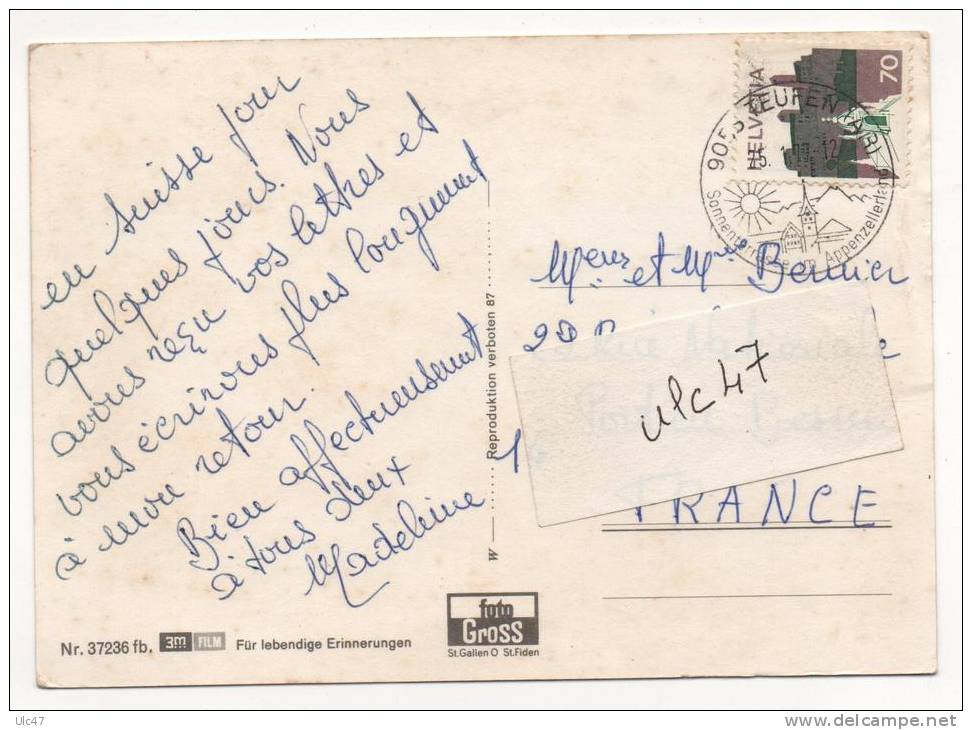 en suisse pour
quelques jours. Nous
avons reçu vos lettres et
vous écrirons plus longuement
à mon retour.
Bien affectueusement
à tous deux
Madeleine
Nr. 37236 fb. 3m FILM Für lebendige Erinnerungen
foto
Gross
St.Gallen O St.Fiden
W — Reproduktion verboten 87
HELVETIA
70
9053 TEUFEN (AR)
Sonnenterrasse im Appenzellerland
Meur et Mme Bernier
ulc47
FRANCE
Ulc47
delcampe.net